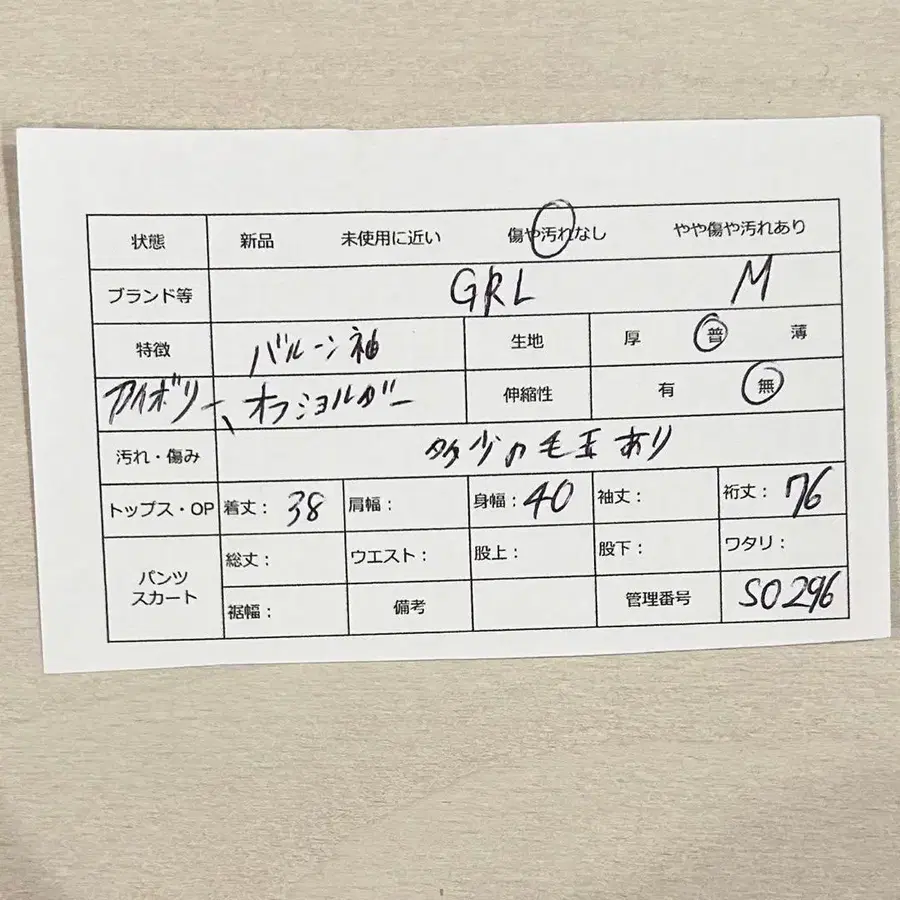 状態 新品 未使用に近い 傷や汚れなし やや傷や汚れあり
ブランド等 GRL M
特徴 バルーン袖 生地 厚 普 薄
アイボリー、オフショルダー 伸縮性 有 無
汚れ・傷み 多少の毛玉あり
トップス・OP 着丈: 38 肩幅: 身幅: 40 袖丈: 裄丈: 76
パンツ スカート 総丈: ウエスト: 股上: 股下: ワタリ:
裾幅: 備考 管理番号 SO296